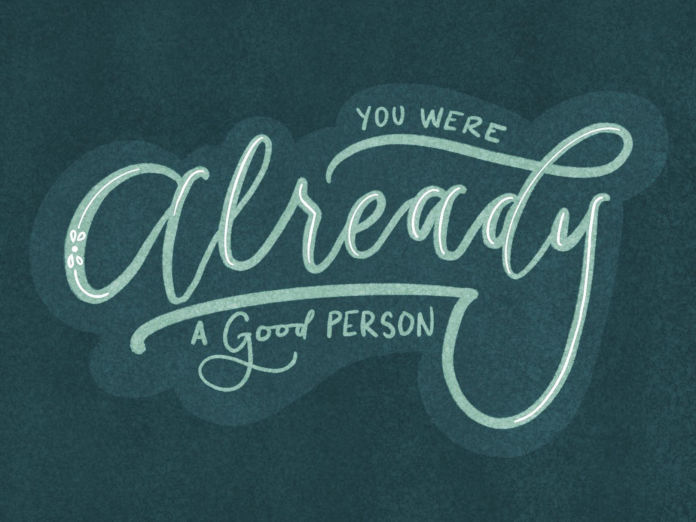 YOU WERE
already
A Good PERSON